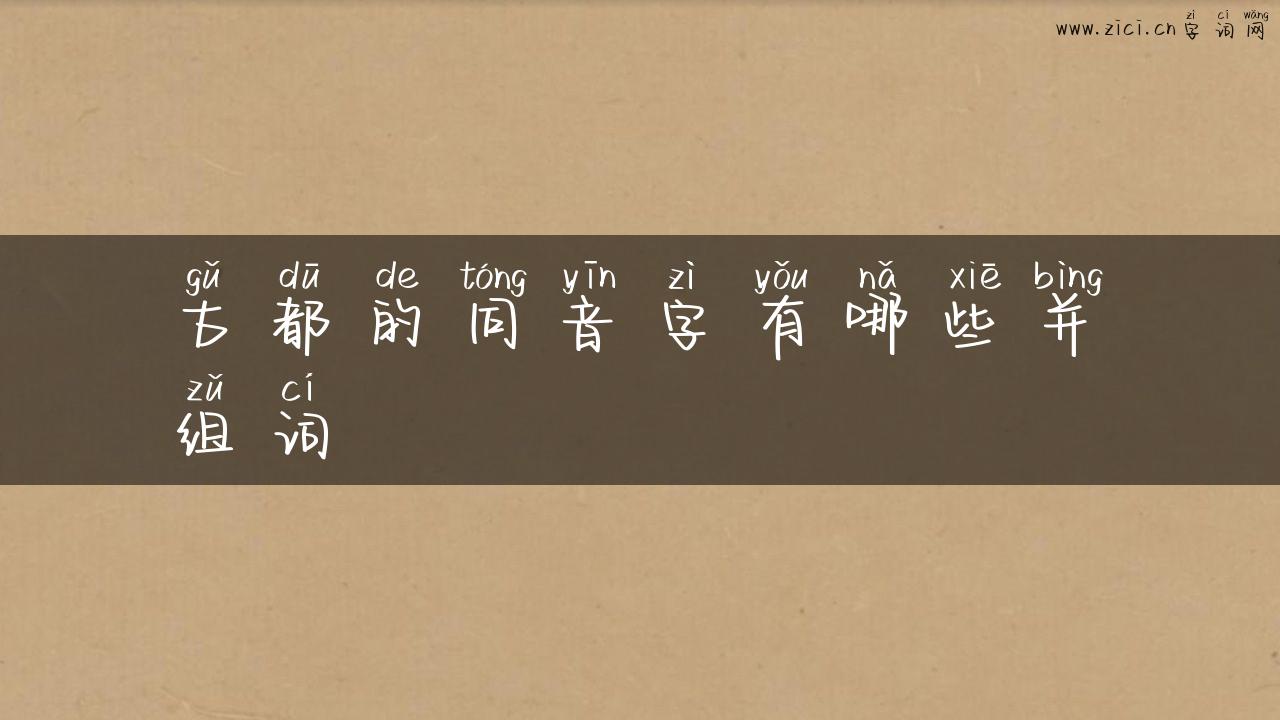 zì cí wǎng
www.zici.cn 字词网
gǔ dū de tóng yīn zì yǒu nǎ xiē bìng
古都的同音字有哪些并
zǔ cí
组词